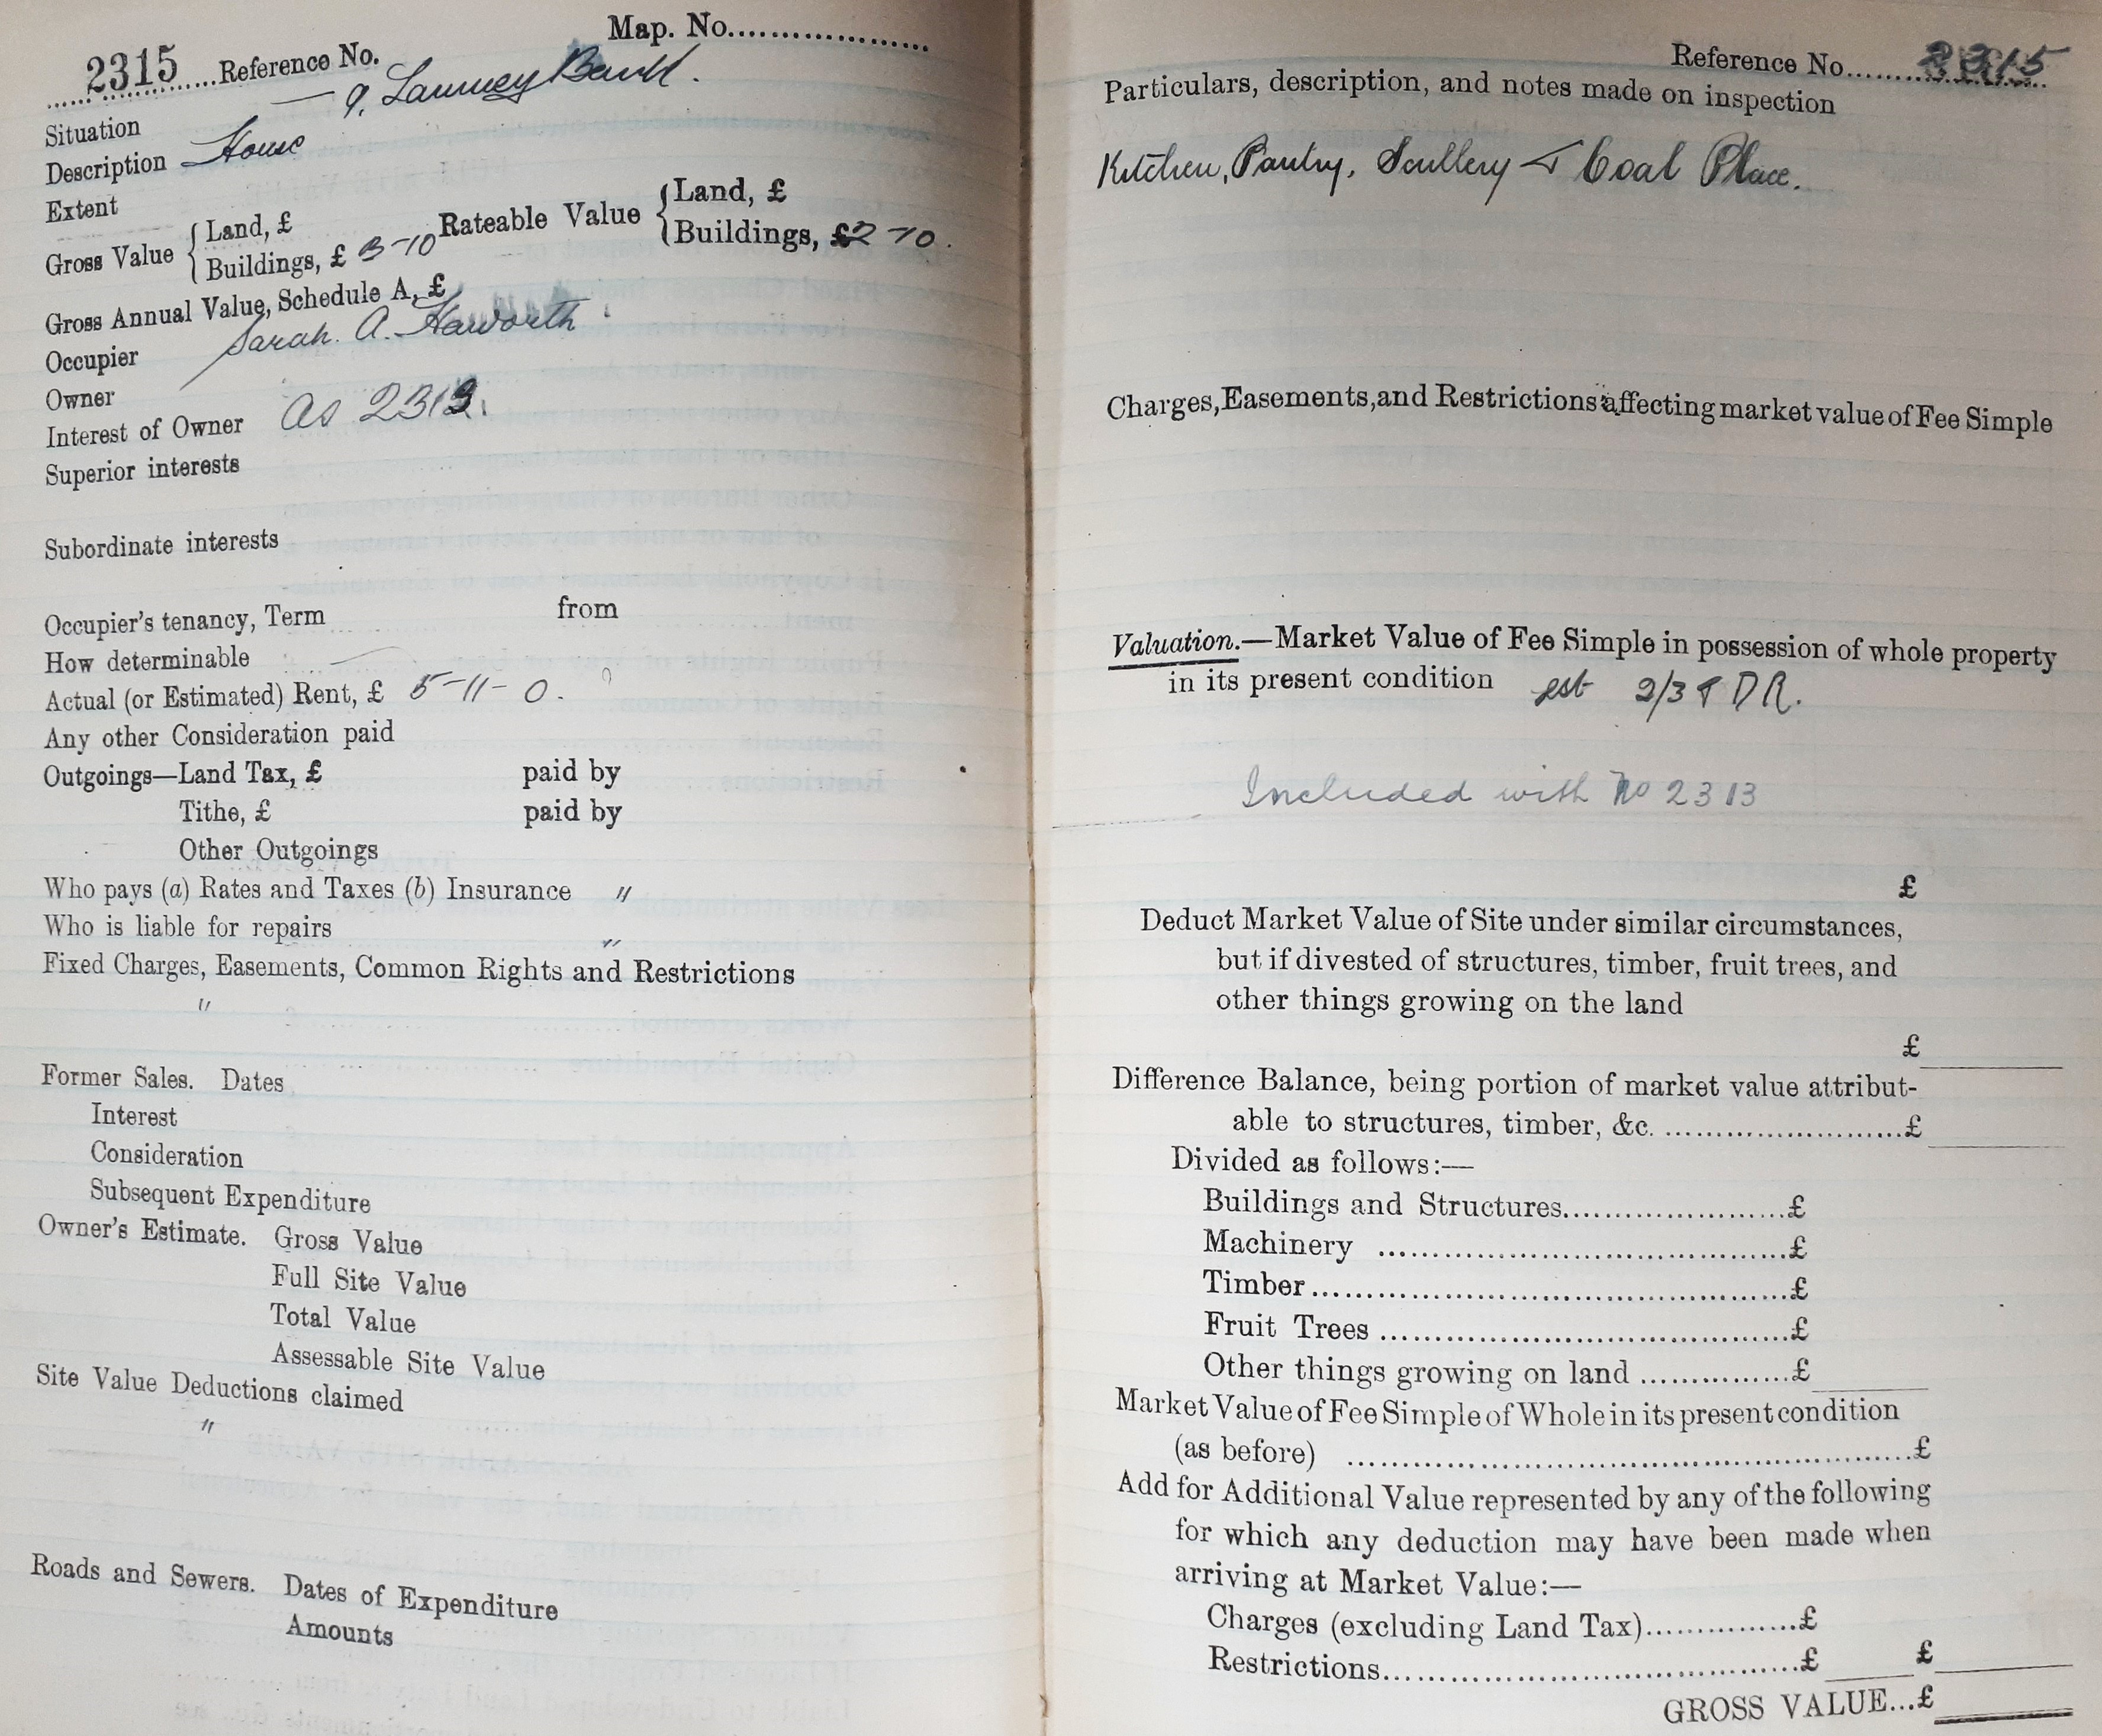 Map. No....................
2315 Reference No.
Situation — 9, Lanney Bank.
Description House
Extent
Gross Value { Land, £ Rateable Value { Land, £
Buildings, £ 3-10 Buildings, £2-10.
Gross Annual Value, Schedule A, £
Occupier Sarah. A. Haworth
Owner
Interest of Owner As 2313.
Superior interests
Subordinate interests
Occupier's tenancy, Term from
How determinable
Actual (or Estimated) Rent, £ 5-11-0.
Any other Consideration paid
Outgoings—Land Tax, £ paid by
Tithe, £ paid by
Other Outgoings
Who pays (a) Rates and Taxes (b) Insurance "
Who is liable for repairs "
Fixed Charges, Easements, Common Rights and Restrictions
"
Former Sales. Dates
Interest
Consideration
Subsequent Expenditure
Owner's Estimate. Gross Value
Full Site Value
Total Value
Assessable Site Value
Site Value Deductions claimed
"
Roads and Sewers. Dates of Expenditure
Amounts
Reference No. 2315
Particulars, description, and notes made on inspection
Kitchen, Pantry, Scullery & Coal Place.
Charges, Easements, and Restrictions affecting market value of Fee Simple
Valuation.—Market Value of Fee Simple in possession of whole property
in its present condition est 2/3 DR.
Included with No 2313
£
Deduct Market Value of Site under similar circumstances,
but if divested of structures, timber, fruit trees, and
other things growing on the land
£
Difference Balance, being portion of market value attribut-
able to structures, timber, &c. ..........................£
Divided as follows:—
Buildings and Structures.......................£
Machinery .......................................£
Timber.............................................£
Fruit Trees .......................................£
Other things growing on land ...............£
Market Value of Fee Simple of Whole in its present condition
(as before) ..........................................................£
Add for Additional Value represented by any of the following
for which any deduction may have been made when
arriving at Market Value:—
Charges (excluding Land Tax)...............£
Restrictions..........................................£ £
GROSS VALUE...£